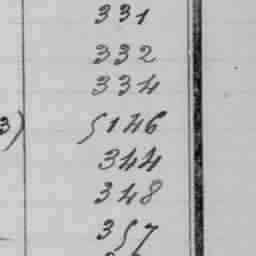 331
332
334
3) 5146
344
348
357